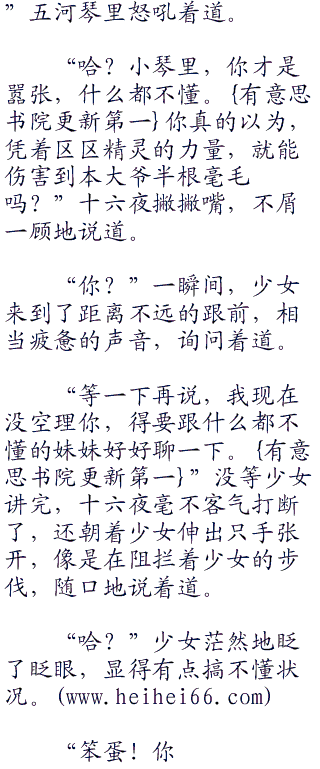 ”五河琴里怒吼着道。
“哈？小琴里，你才是
嚣张，什么都不懂。{有意思
书院更新第一}你真的以为，
凭着区区精灵的力量，就能
伤害到本大爷半根毫毛
吗？”十六夜撇撇嘴，不屑
一顾地说道。
“你？”一瞬间，少女
来到了距离不远的跟前，相
当疲惫的声音，询问着道。
“等一下再说，我现在
没空理你，得要跟什么都不
懂的妹妹好好聊一下。{有意
思书院更新第一}”没等少女
讲完，十六夜毫不客气打断
了，还朝着少女伸出只手张
开，像是在阻拦着少女的步
伐，随口地说着道。
“哈？”少女茫然地眨
了眨眼，显得有点搞不懂状
况。(www.heihei66.com)
“笨蛋！你